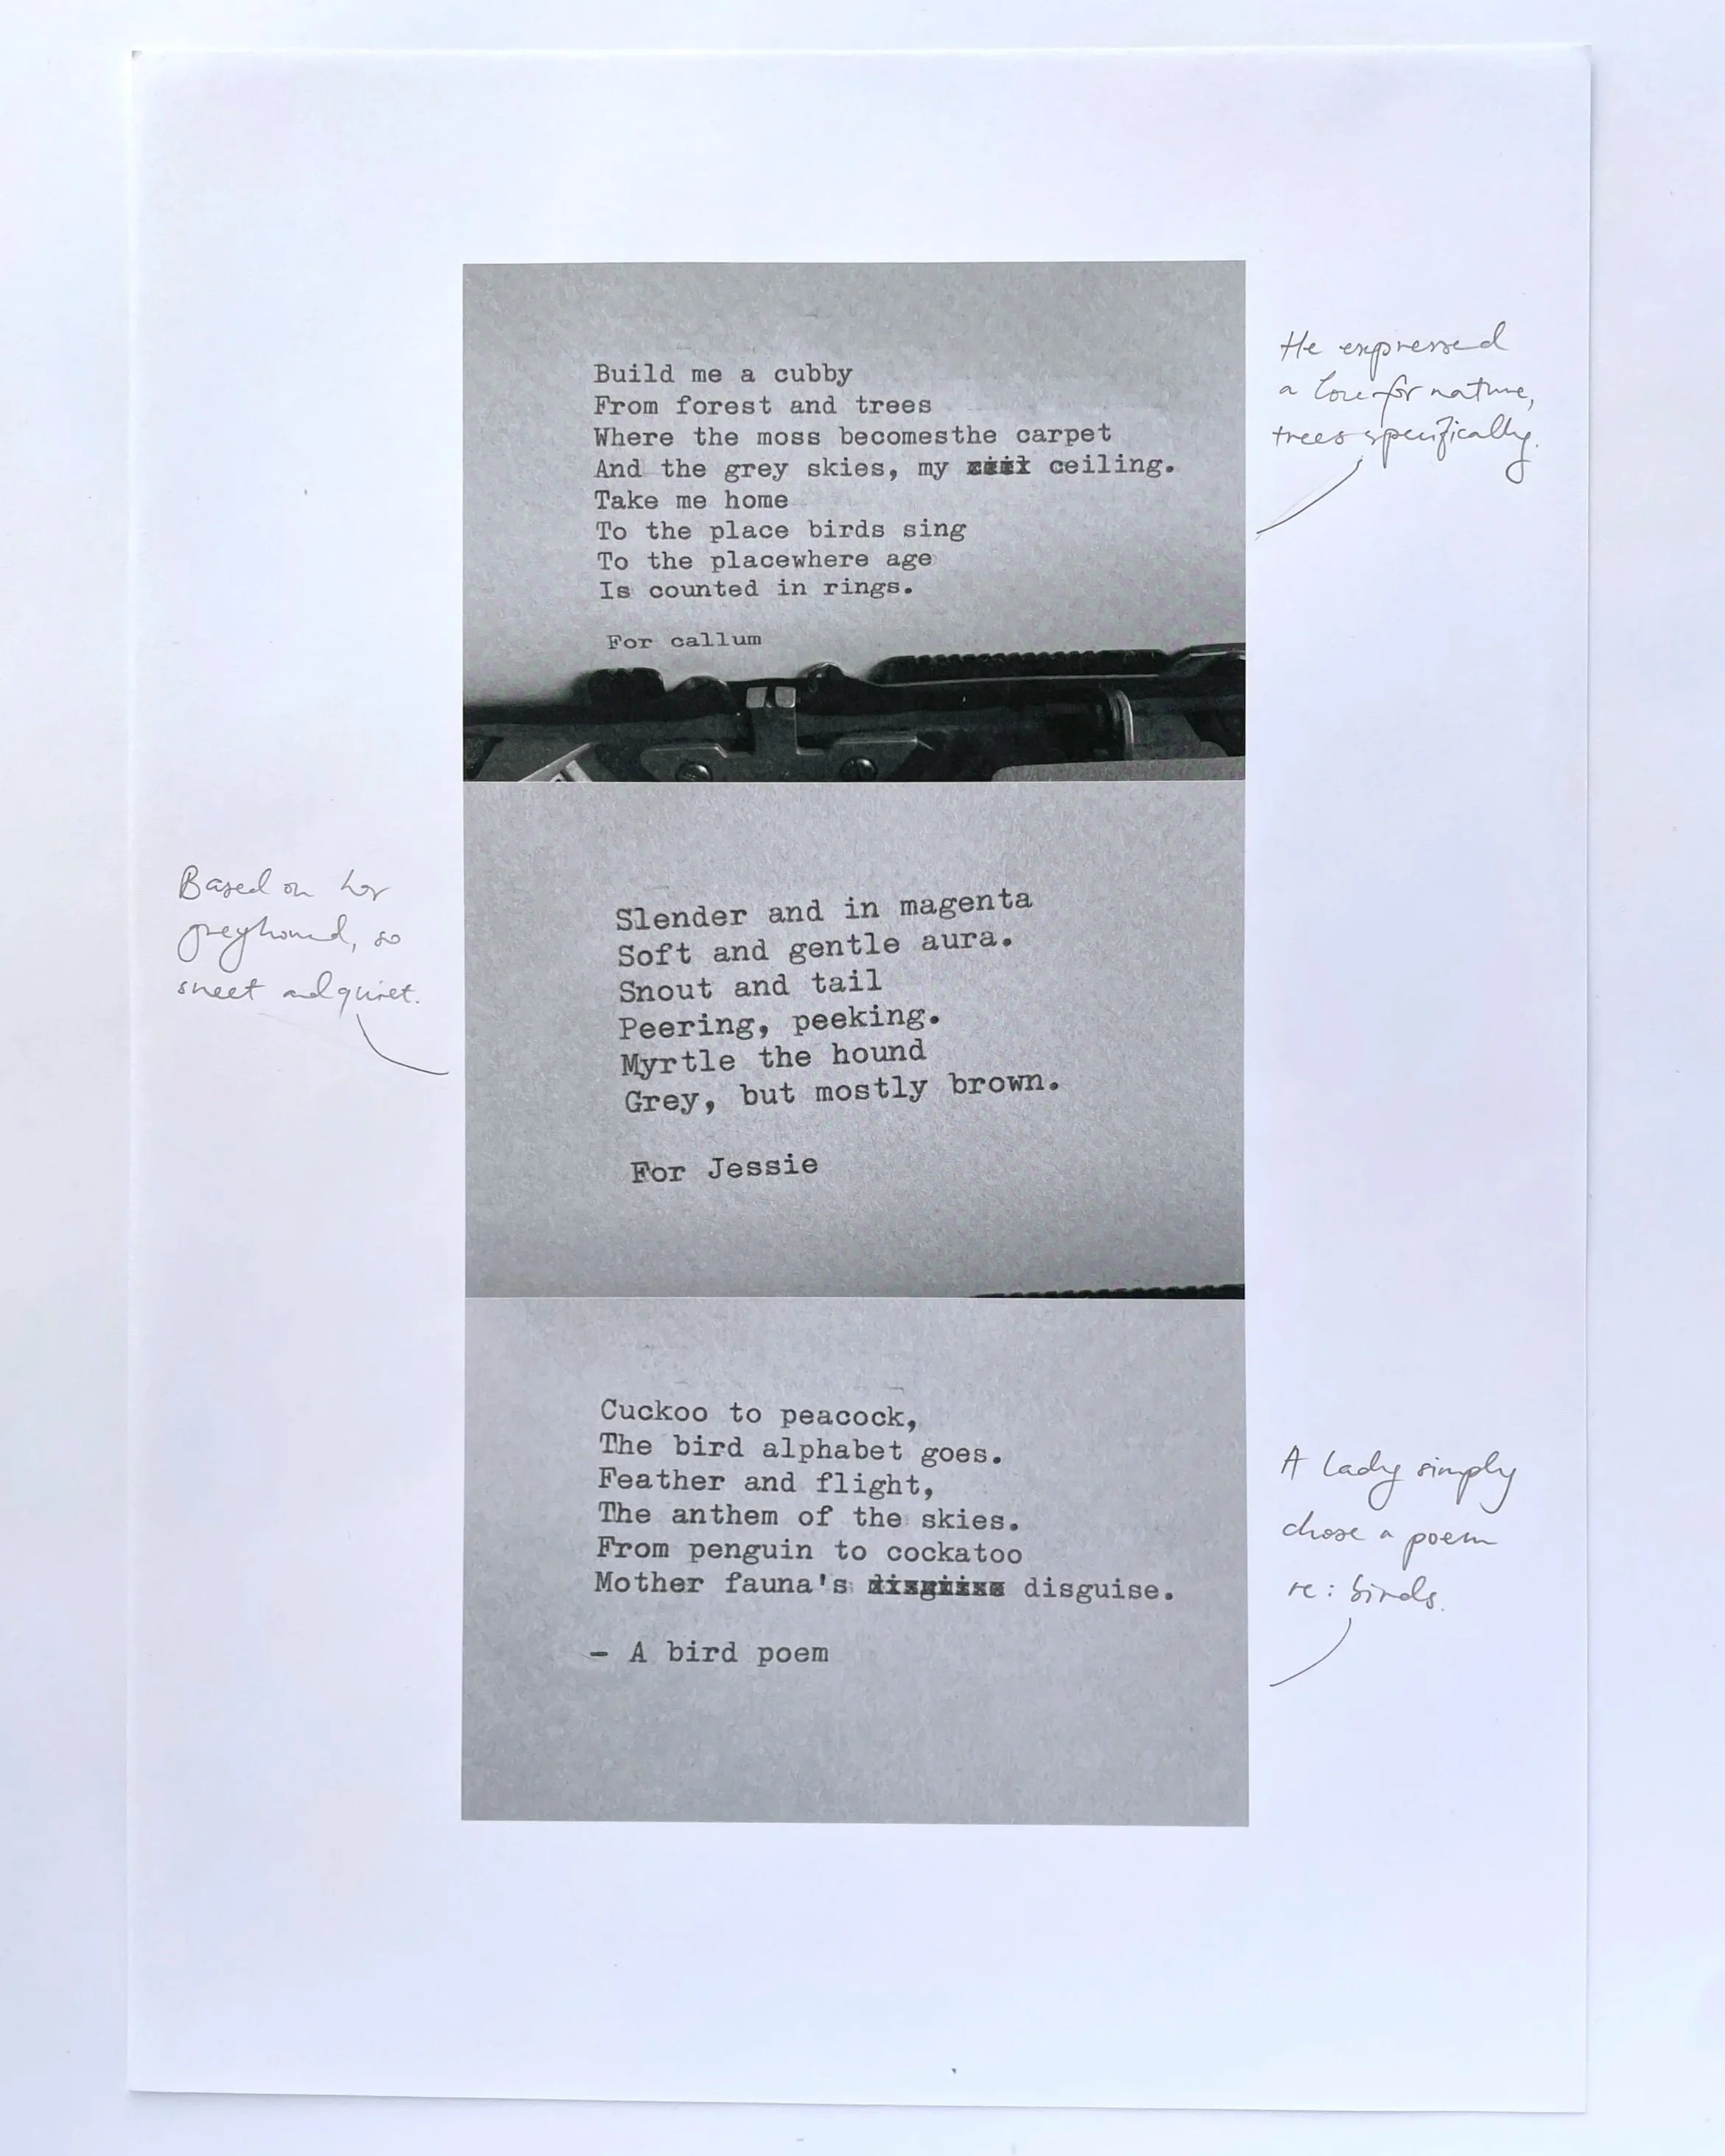 Build me a cubby
From forest and trees
Where the moss becomesthe carpet
And the grey skies, my ceiling.
Take me home
To the place birds sing
To the placewhere age
Is counted in rings.
For callum
He expressed
a love for nature,
trees specifically.
Based on her
greyhound, so
sweet and quiet.
Slender and in magenta
Soft and gentle aura.
Snout and tail
Peering, peeking.
Myrtle the hound
Grey, but mostly brown.
For Jessie
Cuckoo to peacock,
The bird alphabet goes.
Feather and flight,
The anthem of the skies.
From penguin to cockatoo
Mother fauna's disguise.
- A bird poem
A lady simply
chose a poem
re: birds.